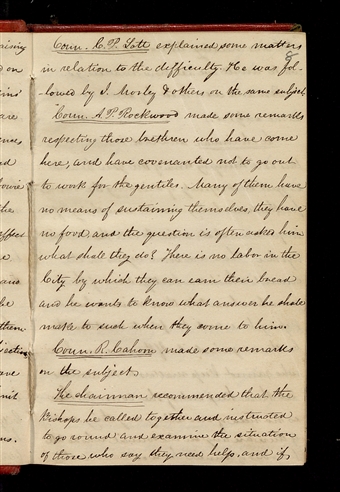 8
Coun. C. P. Lott explained some matters
in relation to the difficulty. He was fol-
-lowed by I. Morley & others on the same subject
Coun. A. P. Rockwood made some remarks
respecting those brethren who have come
here, and have covenanted not to go out
to work for the gentiles. Many of them have
no means of sustaining themselves, they have
no food, and the question is often asked him
what shall they do? There is no labor in the
City by which they can earn their bread
and he wants to know what answer he shall
make to such when they come to him.
Coun. R. Cahoon made some remarks
on the subject.
The chairman recommended that the
Bishops be called together and instructed
to go round and examine the situation
of those who say they need help, and if,